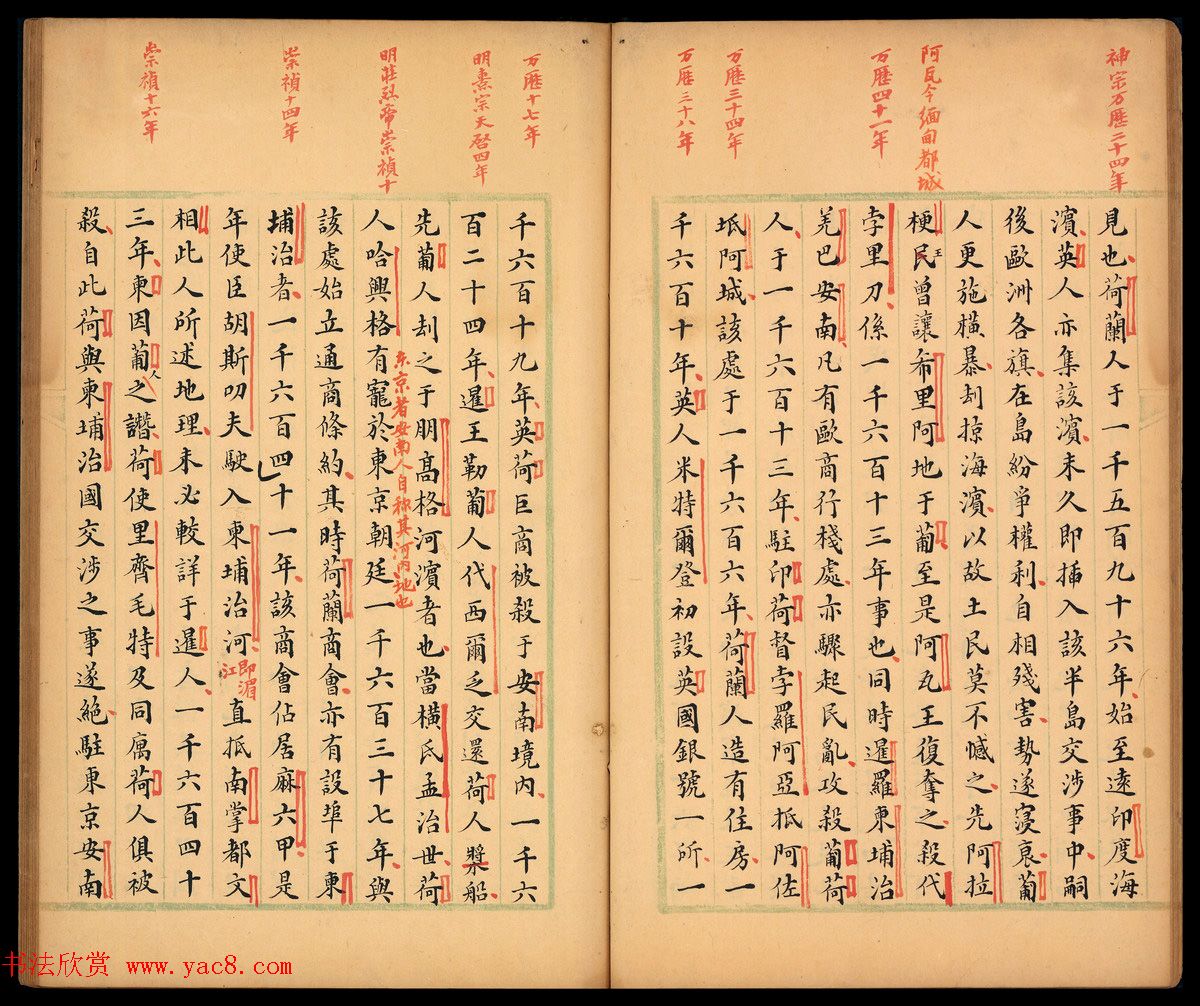 神宗万曆二十四年
阿瓦今緬甸都城
万曆四十一年
万曆三十四年
万曆三十八年
見也荷蘭人于一千五百九十六年始至遠印度海
濱英人亦集該濱未久即插入該半島交涉事中嗣
後歐洲各旗在島紛爭權利自相殘害勢遂寢衰葡
人更施橫暴刦掠海濱以故土民莫不憾之先阿拉
梗民王曾讓希里阿地于葡至是阿瓦王復奪之殺代
孛里刀係一千六百十三年事也同時暹羅柬埔治
羌巴安南凡有歐商行棧處亦驟起民亂攻殺葡荷
人于一千六百十三年駐印荷督孛羅阿亞抵阿佐
坻阿城該處于一千六百六年荷蘭人造有住房一
千六百十年英人米特爾登初設英國銀號一所一
万曆十七年
明熹宗天啓四年
明莊烈帝崇禎十
崇禎十四年
崇禎十六年
千六百十九年英荷巨商被殺于安南境內一千六
百二十四年暹王勒葡人代西爾乏交還荷人槳船
先葡人刦之于朋髙格河濱者也當橫氏孟治世荷
人哈興格有寵於東京朝廷一千六百三十七年與
东京者安南人自称其河內地也
該處始立通商條約其時荷蘭商會亦有設埠于柬
埔治者一千六百四十一年該商會佔居麻六甲是
年使臣胡斯叨夫駛入柬埔治河即湄江直抵南掌都文
相此人所述地理未必較詳于暹人一千六百四十
三年柬因葡人之譖荷使里齊毛特及同寓荷人俱被
殺自此荷與柬埔治國交涉之事遂絕駐東京安南
书法欣赏 www.yac8.com